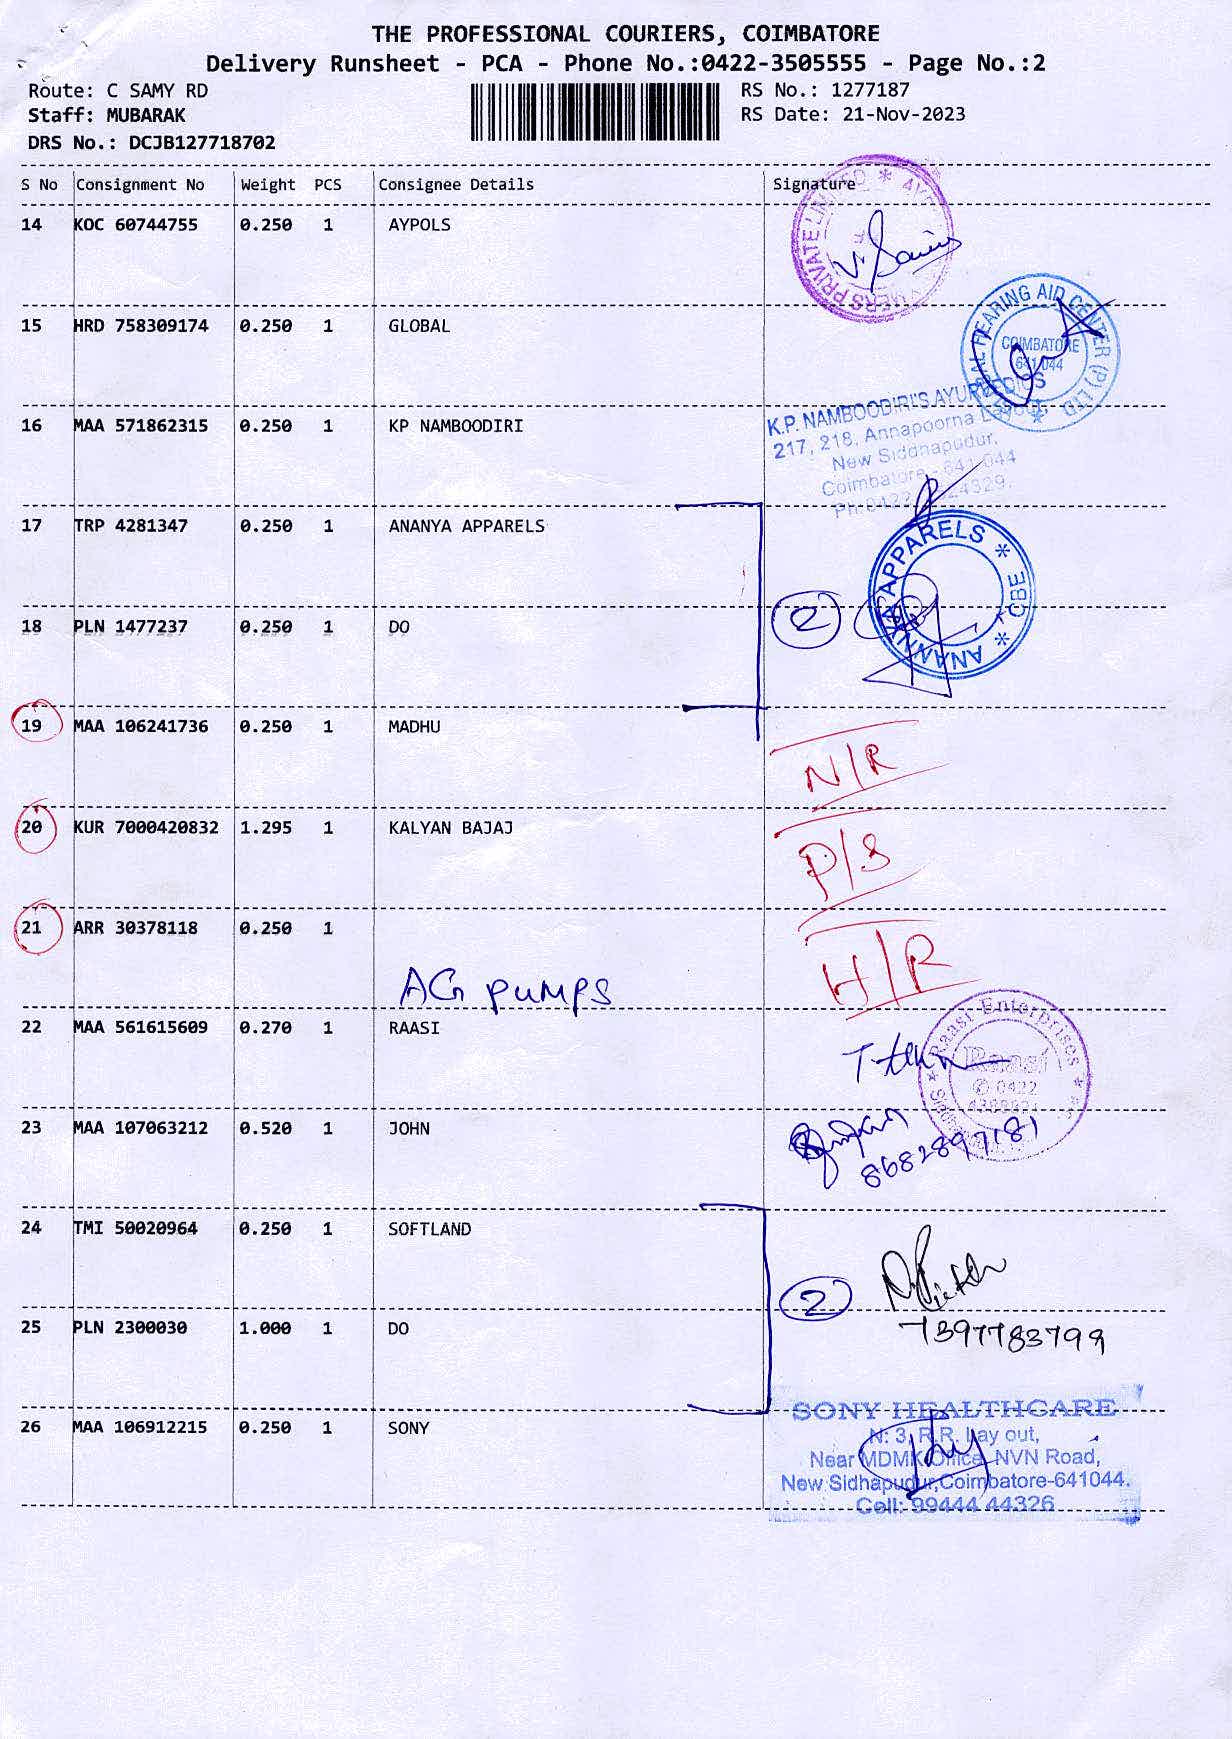 THE PROFESSIONAL COURIERS, COIMBATORE
Delivery Runsheet - PCA - Phone No.:0422-3505555 - Page No.:2
Route: C SAMY RD
Staff: MUBARAK
DRS No.: DCJB127718702
RS No.: 1277187
RS Date: 21-Nov-2023
S No Consignment No Weight PCS Consignee Details Signature
14 KOC 60744755 0.250 1 AYPOLS
PRIVATE LIMITED * AY
15 HRD 758309174 0.250 1 GLOBAL
HEARING AID CENTER (P) LTD *
COIMBATORE
641 044
16 MAA 571862315 0.250 1 KP NAMBOODIRI
K.P. NAMBOODIRI'S AYURVEDICS
217, 218, Annapoorna Layout,
New Siddhapudur,
Coimbatore - 641 044
17 TRP 4281347 0.250 1 ANANYA APPARELS
ANANNYA APPARELS * CBE *
18 PLN 1477237 0.250 1 DO
2
19 MAA 106241736 0.250 1 MADHU
N/R
20 KUR 7000420832 1.295 1 KALYAN BAJAJ
P/S
21 ARR 30378118 0.250 1
AG PUMPS
H/R
22 MAA 561615609 0.270 1 RAASI
Raasi Enterprises
Raasi
0422
23 MAA 107063212 0.520 1 JOHN
8682897181
24 TMI 50020964 0.250 1 SOFTLAND
2
25 PLN 2300030 1.000 1 DO
7397783799
26 MAA 106912215 0.250 1 SONY
SONY HEALTHCARE
N: 3, R.R. Lay out,
Near MDMK Office, NVN Road,
New Sidhapudur, Coimbatore-641044.
Cell: 99444 44326